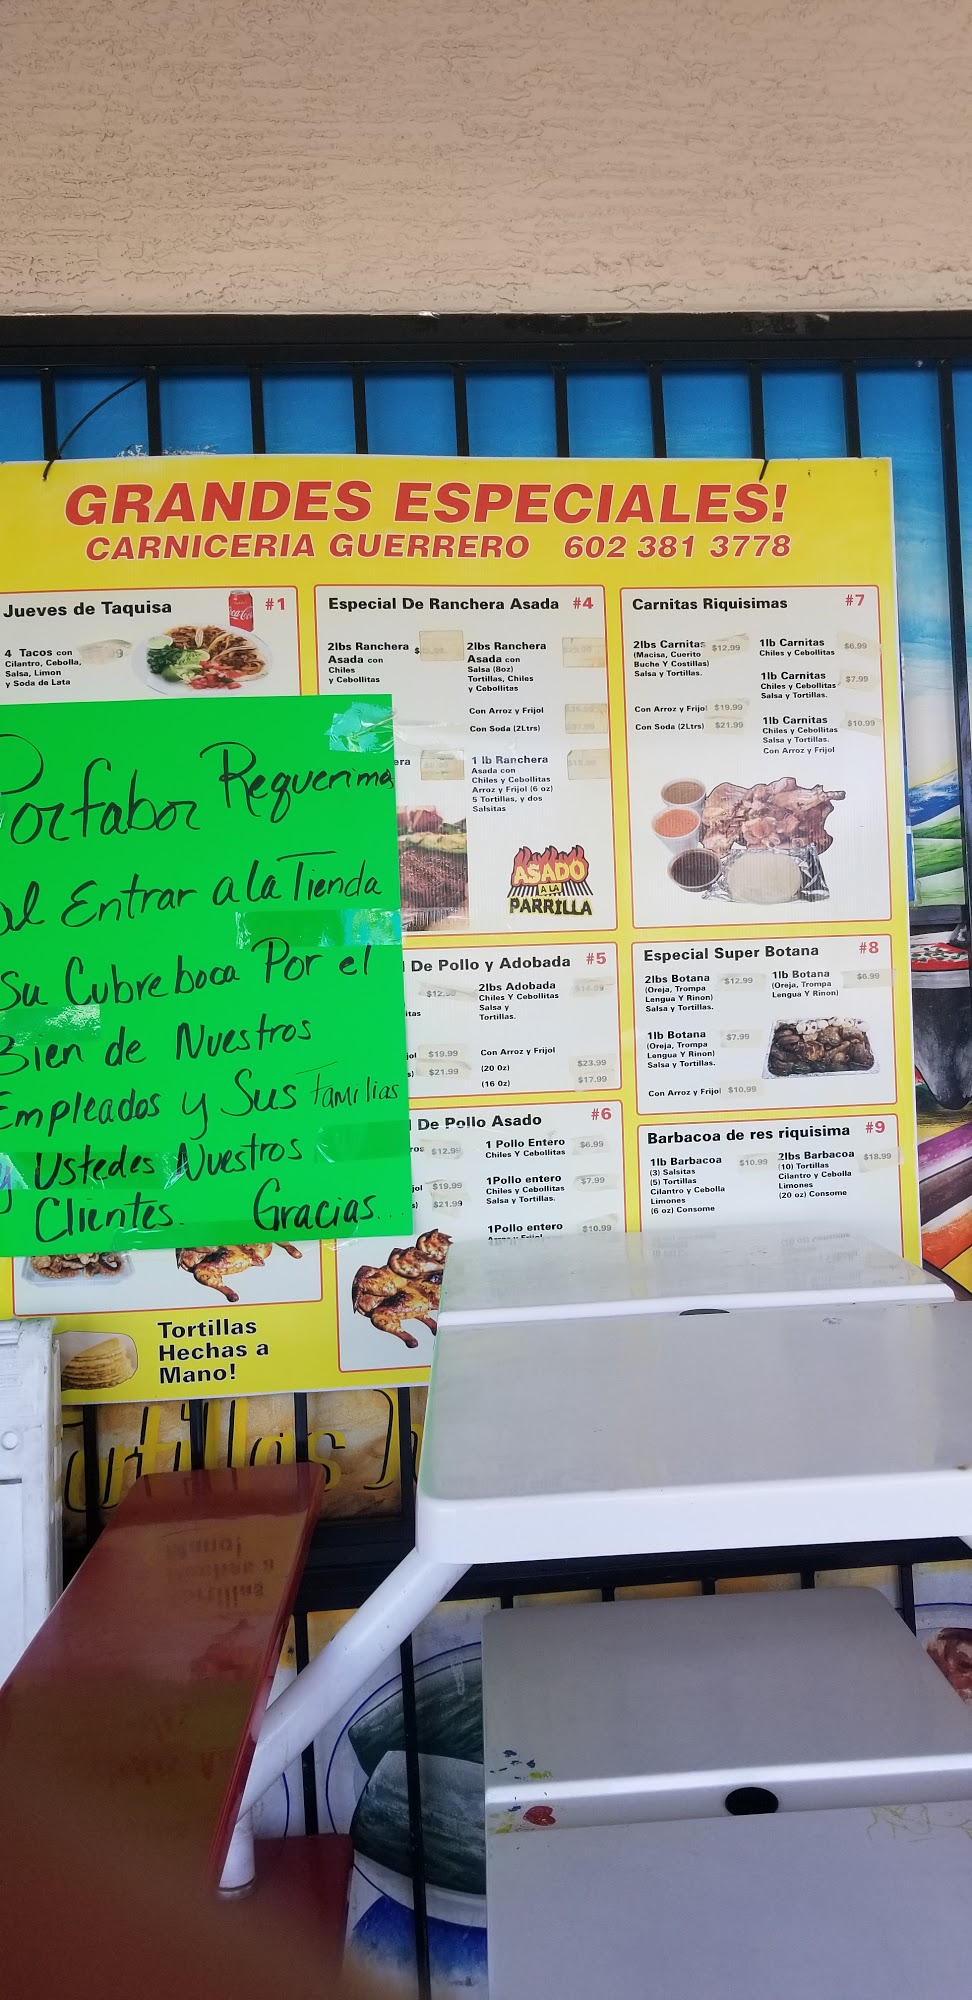 GRANDES ESPECIALES!
CARNICERIA GUERRERO 602 381 3778
Jueves de Taquisa #1
4 Tacos con
Cilantro, Cebolla,
Salsa, Limon
y Soda de Lata
Especial De Ranchera Asada #4
2lbs Ranchera
Asada con
Chiles
y Cebollitas
2lbs Ranchera
Asada con
Salsa (8oz)
Tortillas, Chiles
y Cebollitas
Con Arroz y Frijol
Con Soda (2Ltrs)
1 lb Ranchera
Asada con
Chiles y Cebollitas
Arroz y Frijol (6 oz)
5 Tortillas, y dos
Salsitas
ASADO
A LA
PARRILLA
Carnitas Riquisimas #7
2lbs Carnitas $12.99
(Macisa, Cuerito
Buche Y Costillas)
Salsa y Tortillas.
Con Arroz y Frijol $19.99
Con Soda (2Ltrs) $21.99
1lb Carnitas $6.99
Chiles y Cebollitas
1lb Carnitas $7.99
Chiles y Cebollitas
Salsa y Tortillas.
1lb Carnitas $10.99
Chiles y Cebollitas
Salsa y Tortillas.
Con Arroz y Frijol
Porfabor Requerimos
al Entrar a la Tienda
Su Cubreboca Por el
Bien de Nuestros
Empleados y Sus familias
y Ustedes Nuestros
Clientes. Gracias...
De Pollo y Adobada #5
$12.99
$19.99
$21.99
2lbs Adobada
Chiles Y Cebollitas
Salsa y
Tortillas.
Con Arroz y Frijol
(20 Oz) $23.99
(16 Oz) $17.99
Especial Super Botana #8
2lbs Botana $12.99
(Oreja, Trompa
Lengua Y Rinon)
Salsa y Tortillas.
1lb Botana $6.99
(Oreja, Trompa
Lengua Y Rinon)
1lb Botana $7.99
(Oreja, Trompa
Lengua Y Rinon)
Salsa y Tortillas.
Con Arroz y Frijol $10.99
De Pollo Asado #6
$12.99
$19.99
$21.99
1 Pollo Entero $6.99
Chiles Y Cebollitas
1Pollo entero $7.99
Chiles y Cebollitas
Salsa y Tortillas.
1Pollo entero $10.99
Barbacoa de res riquisima #9
1lb Barbacoa $10.99
(3) Salsitas
(5) Tortillas
Cilantro y Cebolla
Limones
(6 oz) Consome
2lbs Barbacoa $18.99
(10) Tortillas
Cilantro y Cebolla
Limones
(20 oz) Consome
Tortillas
Hechas a
Mano!